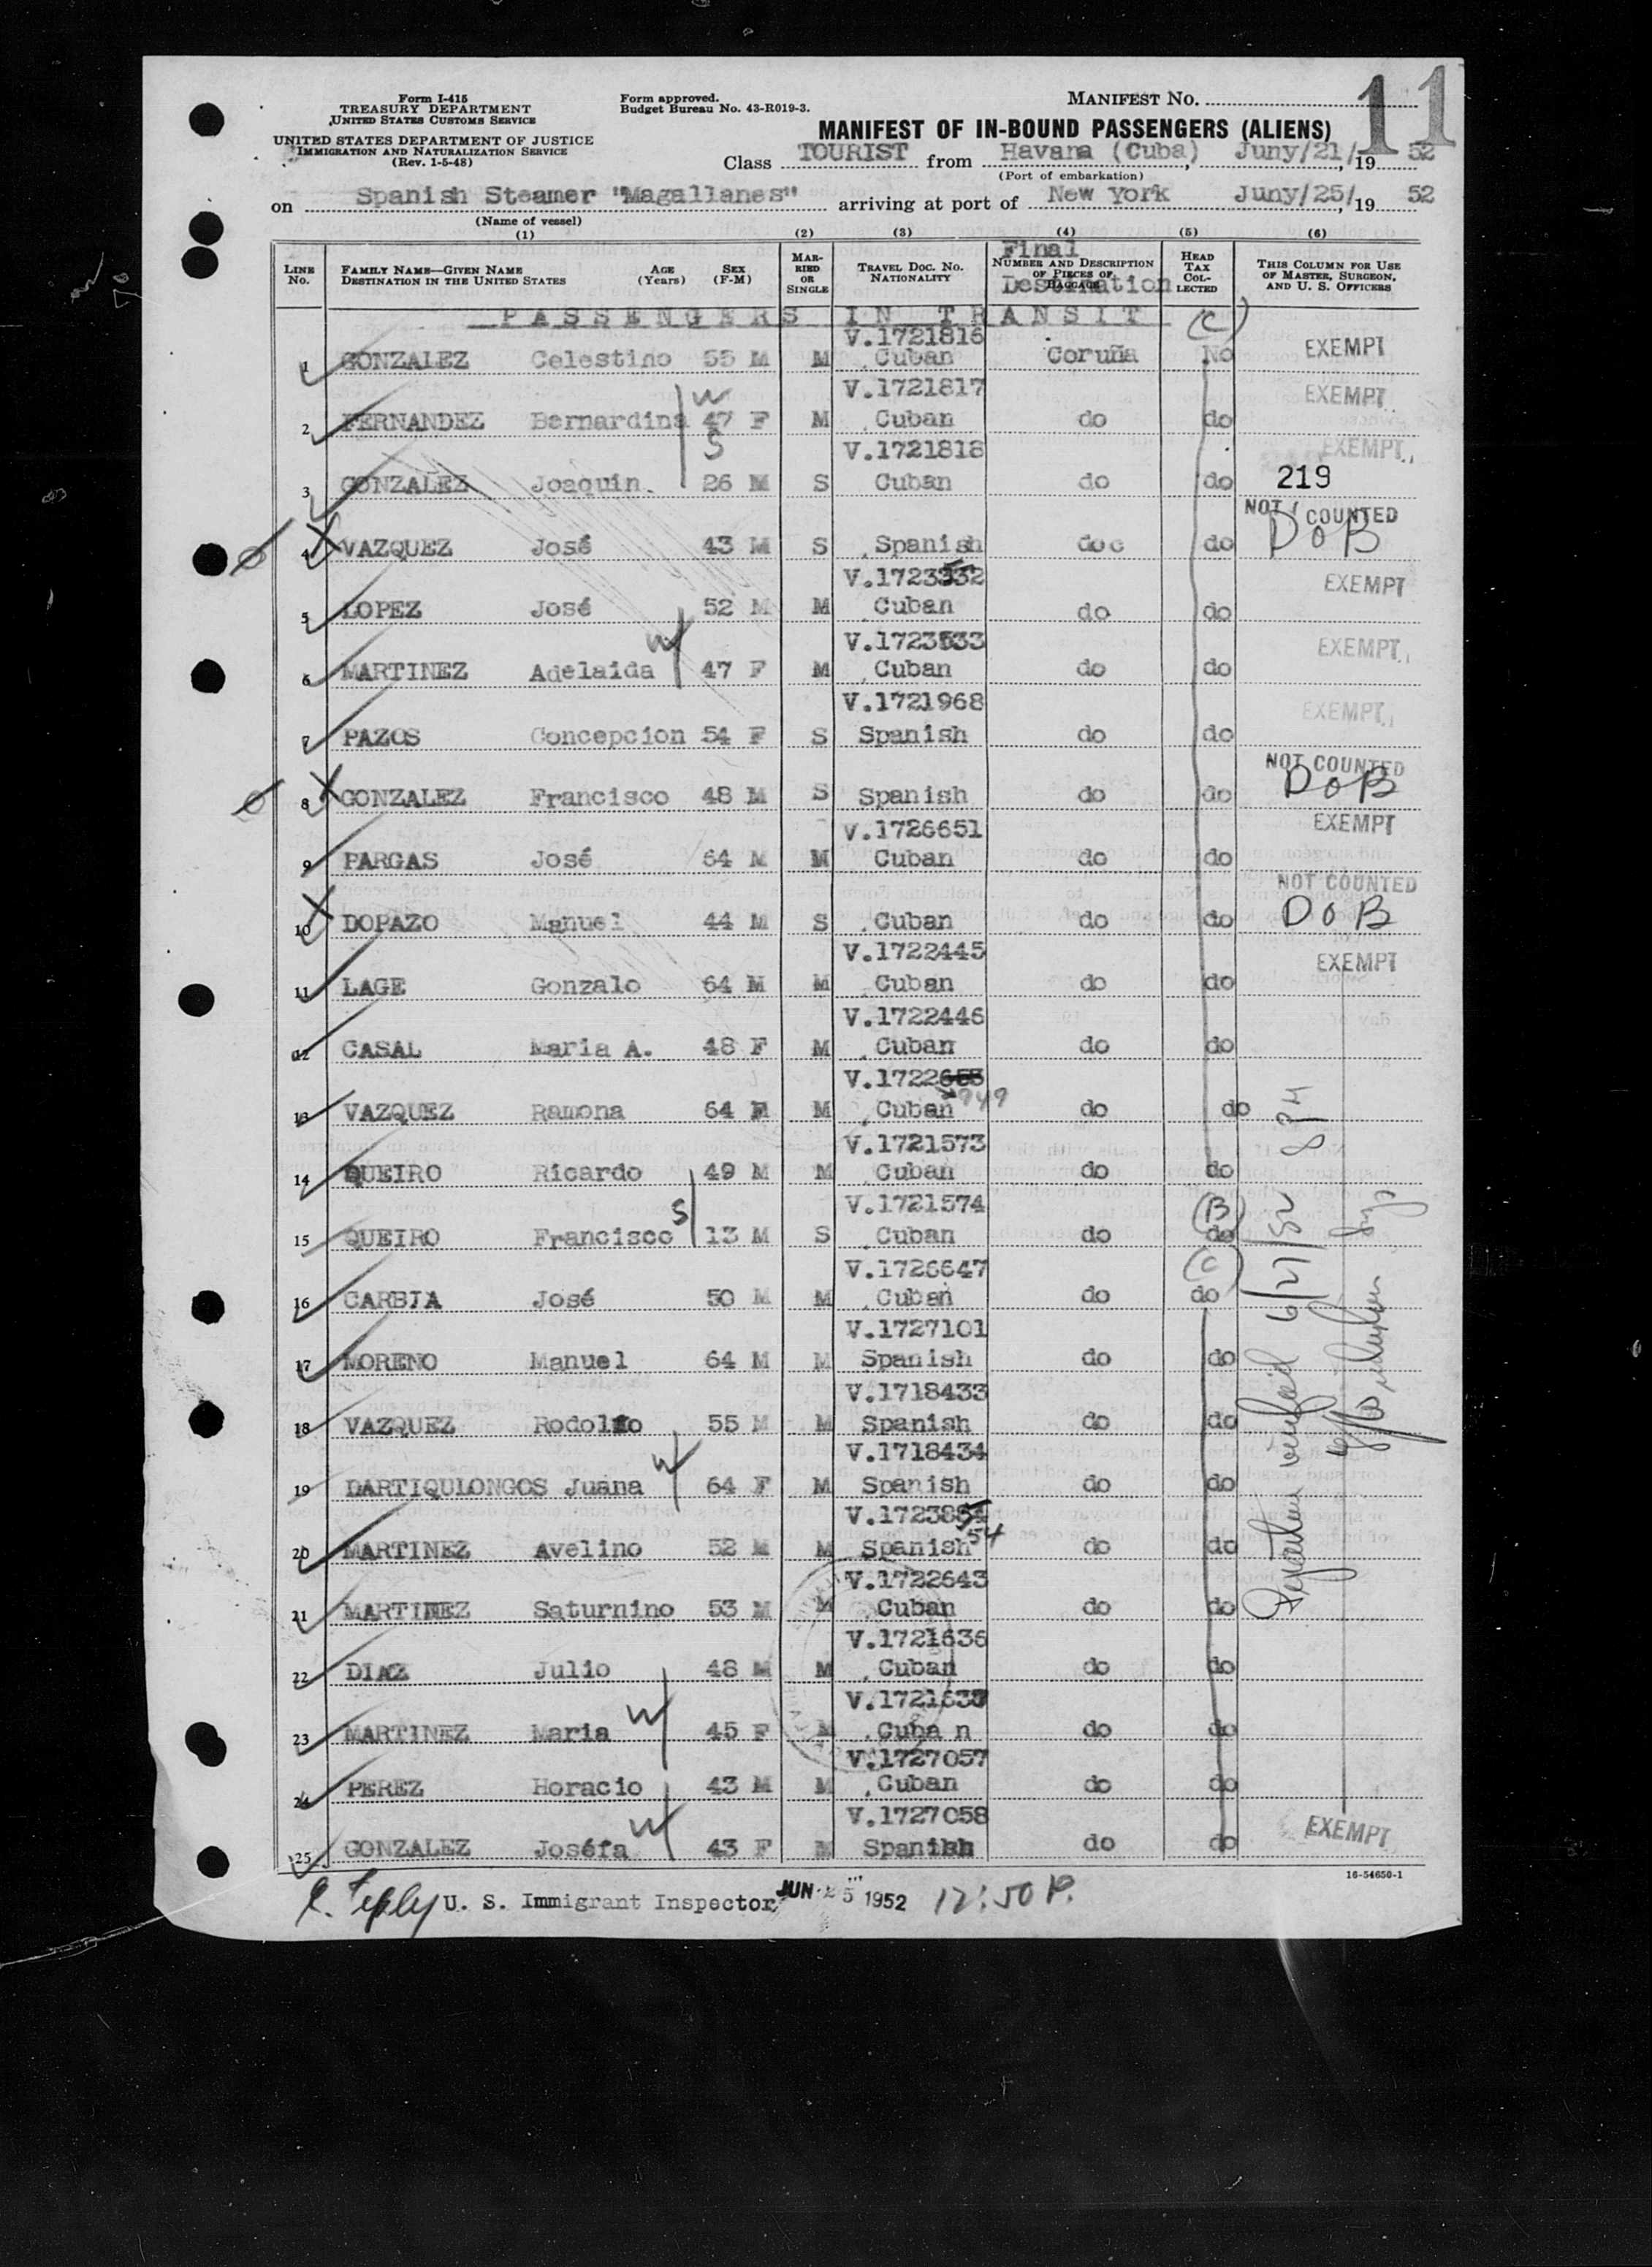 Form I-415
TREASURY DEPARTMENT
UNITED STATES CUSTOMS SERVICE
UNITED STATES DEPARTMENT OF JUSTICE
IMMIGRATION AND NATURALIZATION SERVICE
(Rev. 1-5-48)
Form approved.
Budget Bureau No. 43-R019-3.
MANIFEST NO. 11
MANIFEST OF IN-BOUND PASSENGERS (ALIENS)
Class TOURIST from Havana (Cuba), Juny/21/, 19 52
(Port of embarkation)
on Spanish Steamer "Magallanes" arriving at port of New York Juny/25/, 19 52
(Name of vessel)
(1) (2) (3) (4) (5) (6)
LINE No. FAMILY NAME—GIVEN NAME DESTINATION IN THE UNITED STATES AGE (Years) SEX (F-M) MARRIED OR SINGLE TRAVEL DOC. NO. NATIONALITY NUMBER AND DESCRIPTION OF PIECES OF BAGGAGE Final Destination HEAD TAX COLLECTED THIS COLUMN FOR USE OF MASTER, SURGEON, AND U. S. OFFICERS
PASSENGERS IN TRANSIT (C)
V.1721816
1 GONZALEZ Celestino 55 M M Cuban Coruña No EXEMPT
W V.1721817 EXEMPT
2 FERNANDEZ Bernardina 47 F M Cuban do do
S V.1721818 EXEMPT
3 GONZALEZ Joaquin. 26 M S Cuban do do 219
NOT COUNTED
4 X VAZQUEZ José 43 M S Spanish doo do DOB
V.1723532 EXEMPT
5 LOPEZ José 52 M M Cuban do do
W V.1723533 EXEMPT
6 MARTINEZ Adelaida 47 F M Cuban do do
V.1721968 EXEMPT
7 PAZOS Concepcion 54 F S Spanish do do
NOT COUNTED
8 X GONZALEZ Francisco 48 M S Spanish do do DOB
V.1726651 EXEMPT
9 PARGAS José 64 M M Cuban do do
NOT COUNTED
10 X DOPAZO Manuel 44 M S Cuban do do DOB
V.1722445 EXEMPT
11 LAGE Gonzalo 64 M M Cuban do do
V.1722446
12 CASAL Maria A. 48 F M Cuban do do
V.1722653 949
13 VAZQUEZ Ramona 64 F M Cuban do do
V.1721573
14 QUEIRO Ricardo 49 M M Cuban do do
S V.1721574 (B)
15 QUEIRO Francisco 13 M S Cuban do do
V.1726647 (C)
16 CARBIA José 50 M M Cuban do do
V.1727101
17 MORENO Manuel 64 M M Spanish do do
V.1718433
18 VAZQUEZ Rodolfo 55 M M Spanish do do
W V.1718434
19 DARTIQULONGOS Juana 64 F M Spanish do do
V.1723854 54
20 MARTINEZ Avelino 52 M M Spanish do do
V.1722643
21 MARTINEZ Saturnino 53 M M Cuban do do
V.1721636
22 DIAZ Julio 48 M M Cuban do do
W V.1721637
23 MARTINEZ Maria 45 F M Cuba n do do
V.1727057
24 PEREZ Horacio 43 M M Cuban do do
W V.1727058 EXEMPT
25 GONZALEZ Joséfa 43 F M Spanish do do
Departure verified 6/27/52 8 PM
16-54650-1
U. S. Immigrant Inspector JUN 25 1952 12:50 P.